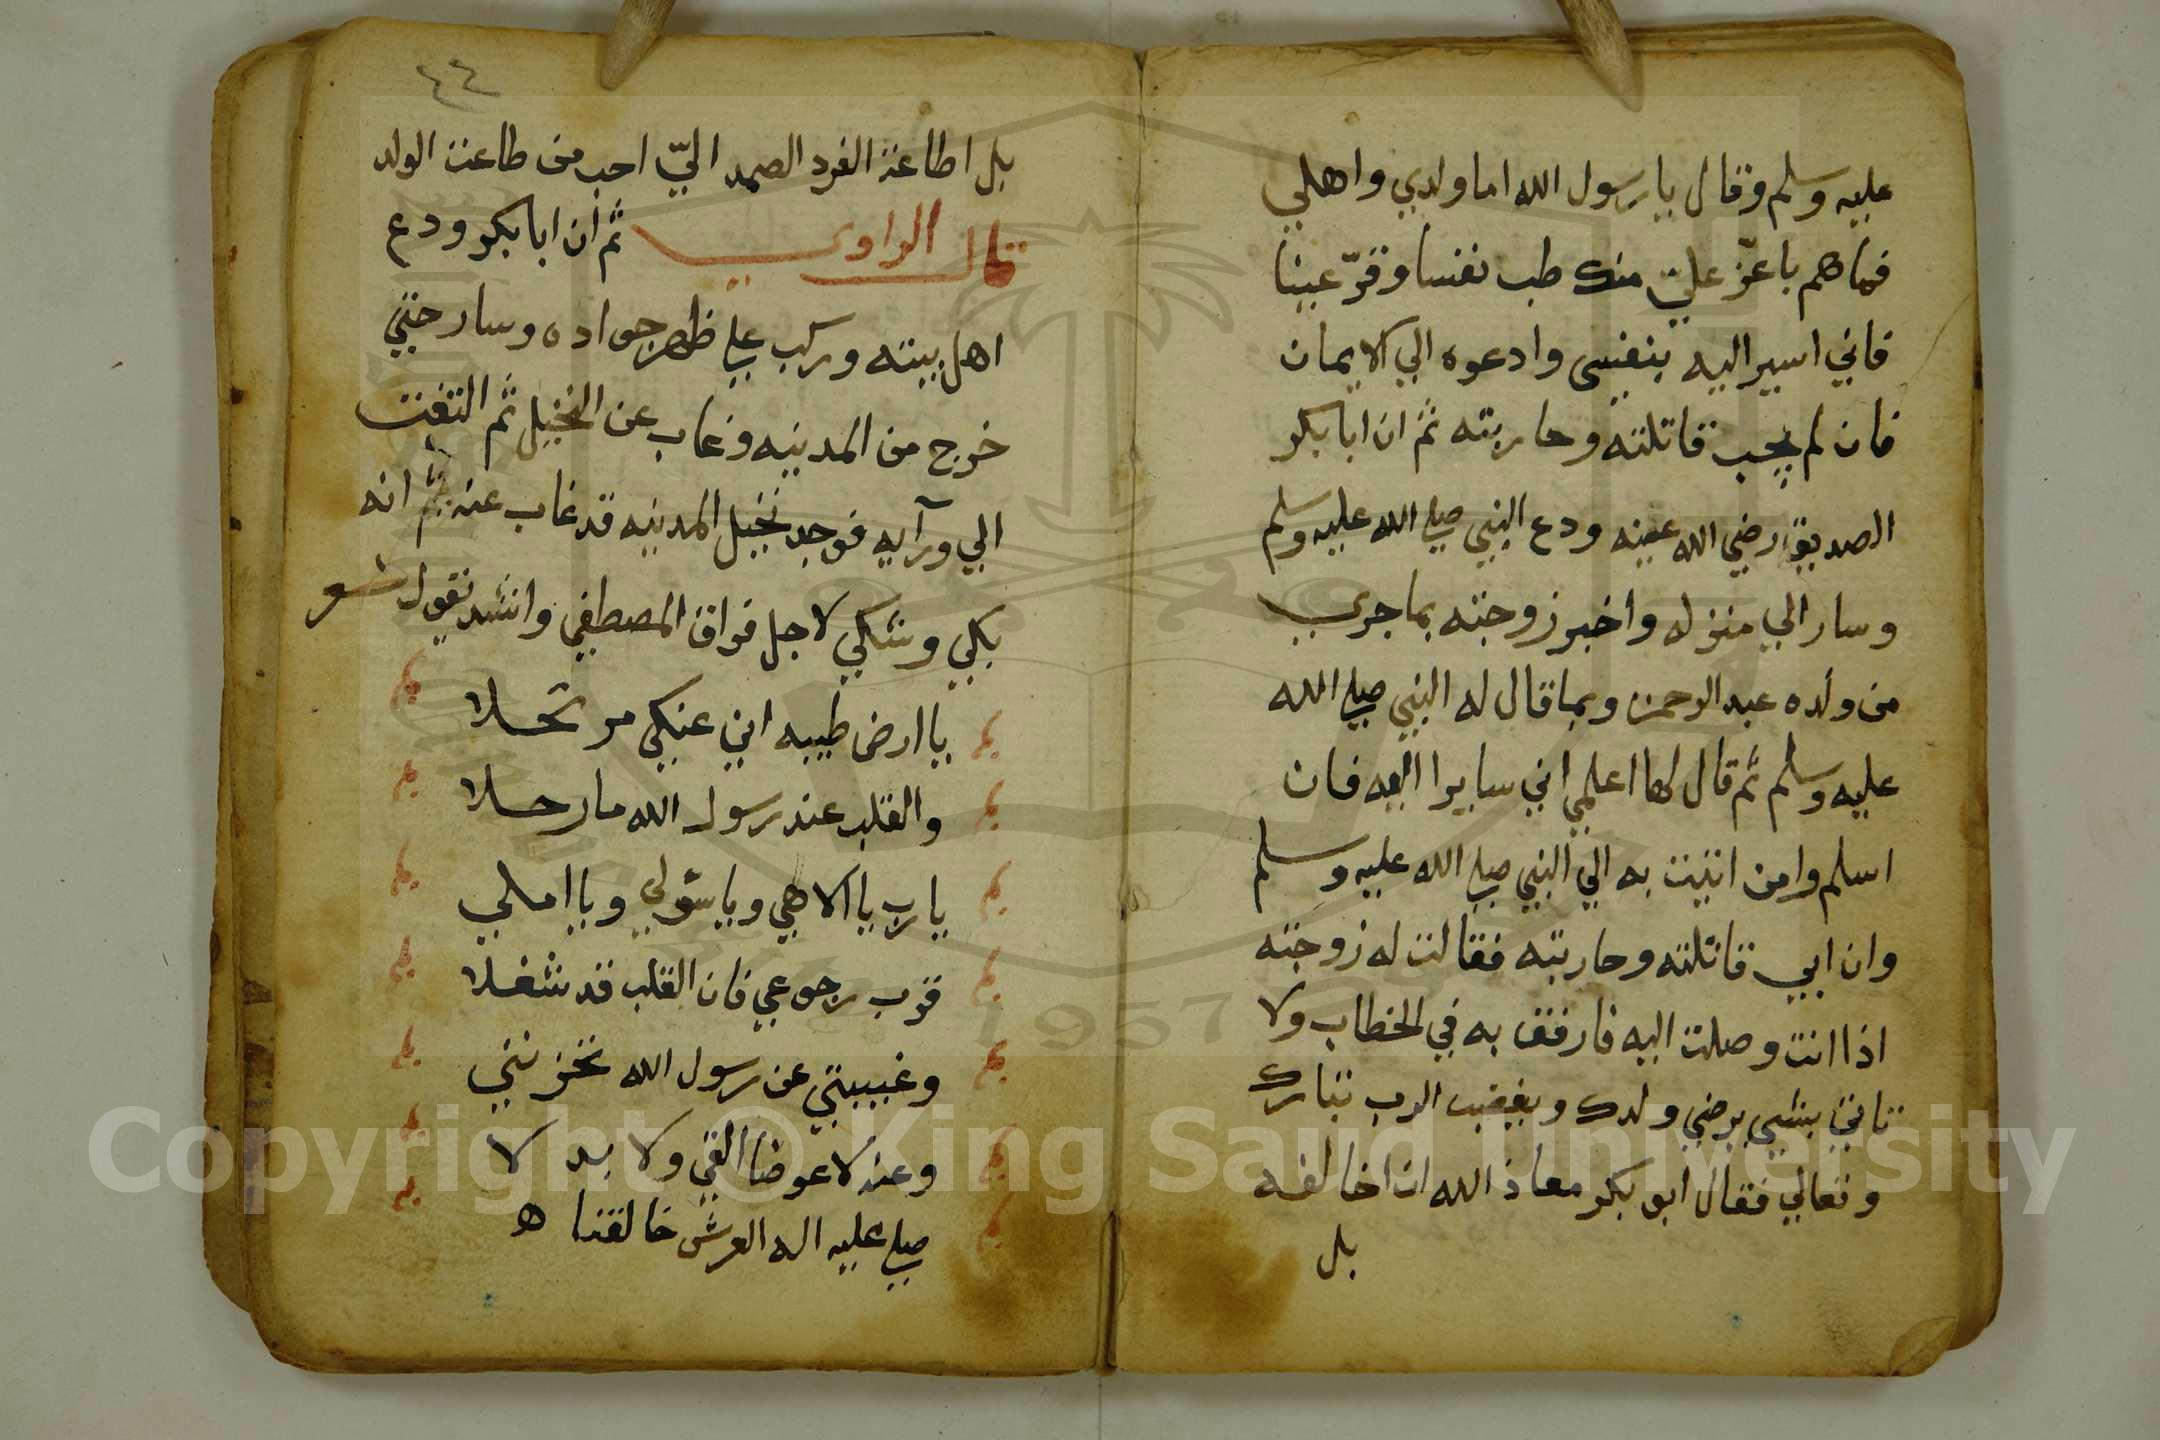 عليه وسلم وقال يا رسول الله اما ولدي واهلي
فما هم باعزّ عليّ منك طب نفسا وقرّ عينا
فاني اسير اليه بنفسي وادعوه الي الايمان
فان لم يجب قاتلته وحاربته ثم ان ابا بكر
الصديق رضي الله عنه ودع النبي صلي الله عليه وسلم
وسار الي منزله واخبر زوجته بما جري
من ولده عبد الرحمن وبما قال له النبي صلي الله
عليه وسلم ثم قال لها اعلمي اني سايرا اليه فان
اسلم وامن اتيت به الي النبي صلي الله عليه وسلم
وان ابي قاتلته وحاربته فقالت له زوجته
اذا انت وصلت اليه فارفق به في الخطاب ولا
تاتي بشي يرضي ولدك ويغضب الرب تبارك
وتعالي فقال ابو بكر معاذ الله ان اخالفه
بل
٤٤
بل اطاعة الفرد الصمد اليّ احب من طاعت الولد
قال الراوي ثم ان ابا بكر ودع
اهل بيته وركب علي ظهر جواده وسار حتي
خرج من المدينه وغاب عن النخيل ثم التفت
الي ورآيه فوجد نخيل المدينه قد غاب عنه ثم انه
بكي وشكي لاجل فراق المصطفي وانشد يقول شعر
يا ارض طيبه اني عنكي مرتحلا
والقلب عند رسول الله ما رحلا
يا رب يا الاهي ويا سؤلي ويا املي
قرب رجوعي فان القلب قد شغلا
وغيبتي عن رسول الله تحزنني
وعنه لا عوضا القي ولا بدلا
صلي عليه اله العرش خالقنا ه
Copyright © King Saud University
1957